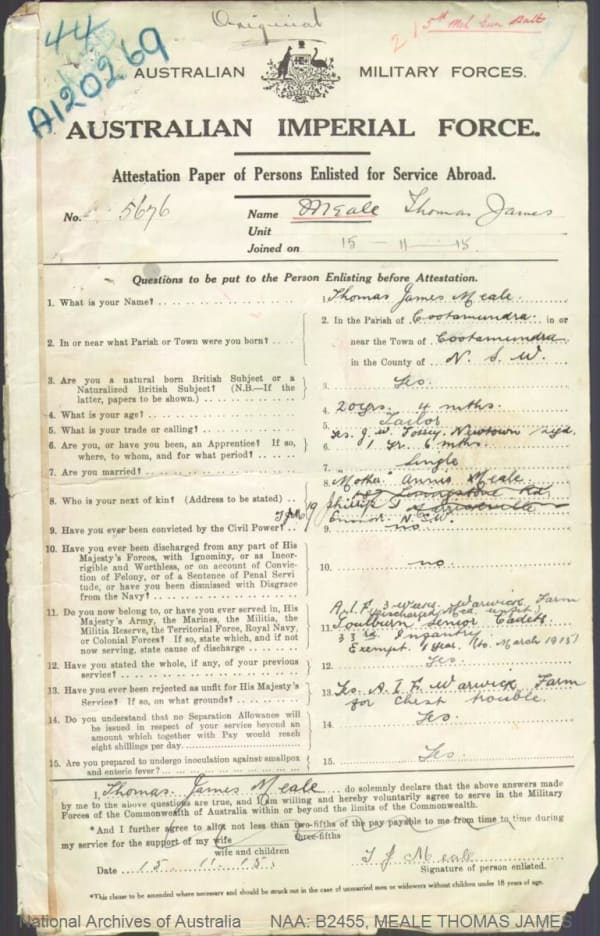 Original
44
5th
A120269
AUSTRALIAN MILITARY FORCES.
AUSTRALIAN IMPERIAL FORCE.
Attestation Paper of Persons Enlisted for Service Abroad.
No. 5676 Name Meale Thomas James
Unit
Joined on 15-11-15
Questions to be put to the Person Enlisting before Attestation.
1. What is your Name? 1. Thomas James Meale.
2. In or near what Parish or Town were you born? 2. In the Parish of Cootamundra in or
near the Town of Cootamundra
in the County of N. S. W.
3. Are you a natural born British Subject or a
Naturalized British Subject? (N.B.—If the
latter, papers to be shown.) 3. Yes.
4. What is your age? 4. 20 yrs. 4 mths.
5. What is your trade or calling? 5. Tailor
6. Are you, or have you been, an Apprentice? If so,
where, to whom, and for what period? 6. Yes. J. W. Newtown
1 Yr. 6 mths.
7. Are you married? 7. Single
8. Who is your next of kin? (Address to be stated) 8. Mother Annie Meale
Livingstone Rd
Marrickville
Phillip
Enmore N.S.W.
9. Have you ever been convicted by the Civil Power? 9. no.
10. Have you ever been discharged from any part of His
Majesty's Forces, with Ignominy, or as Incor-
rigible and Worthless, or on account of Convic-
tion of Felony, or of a Sentence of Penal Servi
tude, or have you been dismissed with Disgrace
from the Navy? 10. no.
11. Do you now belong to, or have you ever served in, His
Majesty's Army, the Marines, the Militia, the
Militia Reserve, the Territorial Force, Royal Navy,
or Colonial Forces? If so, state which, and if not
now serving, state cause of discharge 11. A.I.F. 3 Weeks, Warwick Farm
(discharged Med. unfit)
Goulburn Senior Cadets.
33rd Infantry
Exempt. 1 Year, (to March 1915)
12. Have you stated the whole, if any, of your previous
service? 12. Yes.
13. Have you ever been rejected as unfit for His Majesty's
Service? If so, on what grounds? 13. Yes. A.I.F. Warwick Farm
for Chest trouble.
14. Do you understand that no Separation Allowance will
be issued in respect of your service beyond an
amount which together with Pay would reach
eight shillings per day 14. Yes.
15. Are you prepared to undergo inoculation against smallpox
and enteric fever? 15. Yes.
I, Thomas James Meale do solemnly declare that the above answers made
by me to the above questions are true, and I am willing and hereby voluntarily agree to serve in the Military
Forces of the Commonwealth of Australia within or beyond the limits of the Commonwealth.
*And I further agree to allot not less than two-fifths of the pay payable to me from time to time during
three-fifths
my service for the support of my wife
wife and children
Date 15.11.15. T J Meale
Signature of person enlisted.
*This clause to be amended where necessary and should be struck out in the case of unmarried men or widowers without children under 18 years of age.
National Archives of Australia NAA: B2455, MEALE THOMAS JAMES